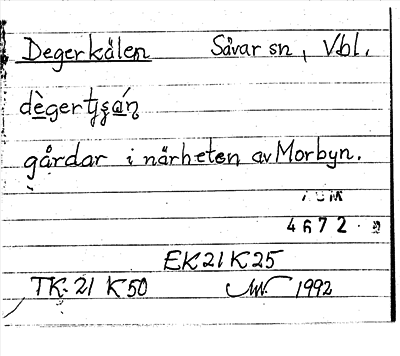 Degerkålen Såvar sn, Vbl.
gårdar i närheten av Morbyn.
4672
EK 21 K 25
TK. 21 K 50 1992